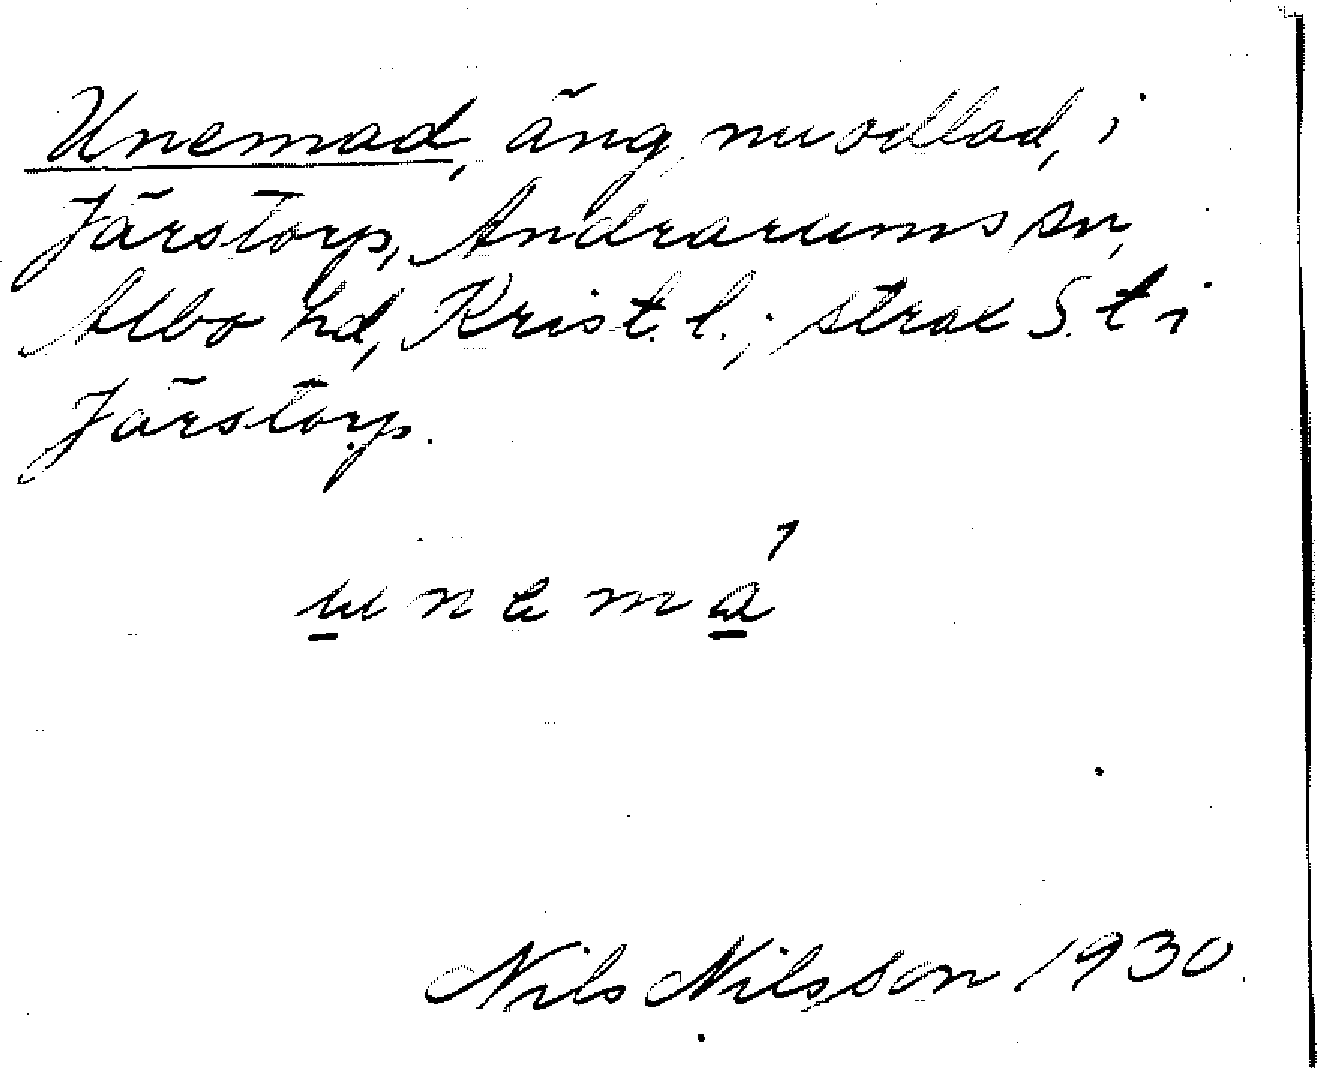 Unemad, äng, nu odlad, i
Järstorp, Andrarums sn,
Albo hd, Krist. l.; strax S. t i
Järstorp.
unemá
Nils Nilsson 1930.